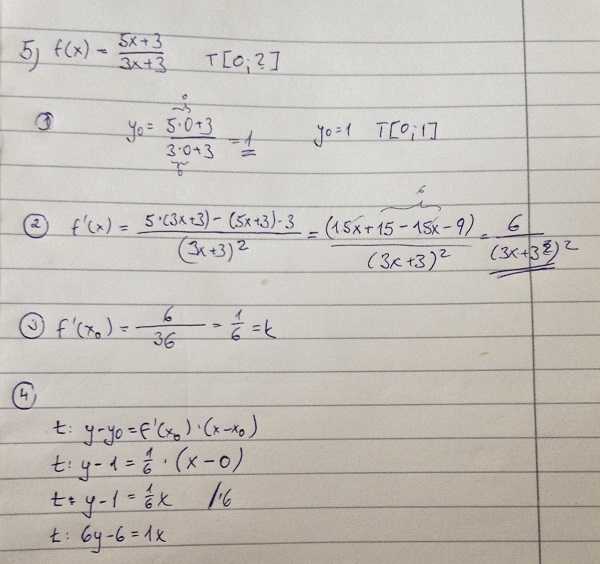 5) f(x) = (5x+3)/(3x+3) T[0;?]
① y₀ = (5·0+3)/(3·0+3) = 1 y₀=1 T[0;1]
② f'(x) = (5·(3x+3) − (5x+3)·3)/(3x+3)² = (15x+15−15x−9)/(3x+3)² = 6/(3x+3)²
③ f'(x₀) = 6/36 = 1/6 = k
④
t: y−y₀=f'(x₀)·(x−x₀)
t: y−1 = 1/6 · (x−0)
t: y−1 = 1/6x /·6
t: 6y−6=1x